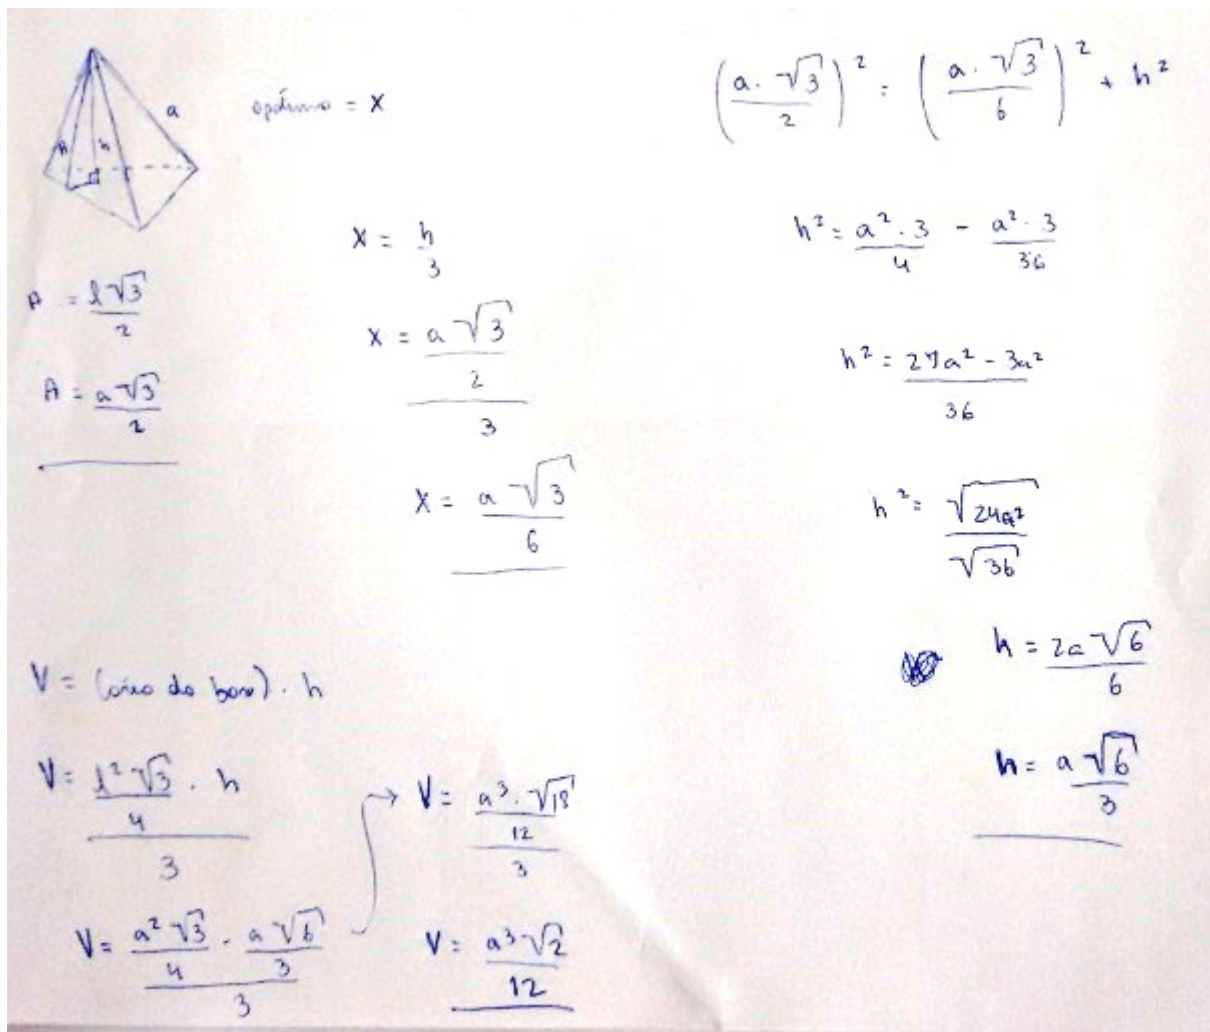 a
A
h
apótema = x
A = l√3/2
A = a√3/2
x = h/3
x = (a√3/2)/3
x = a√3/6
(a.√3/2)² = (a.√3/6)² + h²
h² = a².3/4 - a².3/36
h² = (27a² - 3a²)/36
h² = √24a²/√36
h = 2a√6/6
h = a√6/3
V = (área da base) . h
V = (l²√3/4 . h)/3
V = (a²√3/4 . a√6/3)/3
→ V = (a³.√18/12)/3
V = a³√2/12